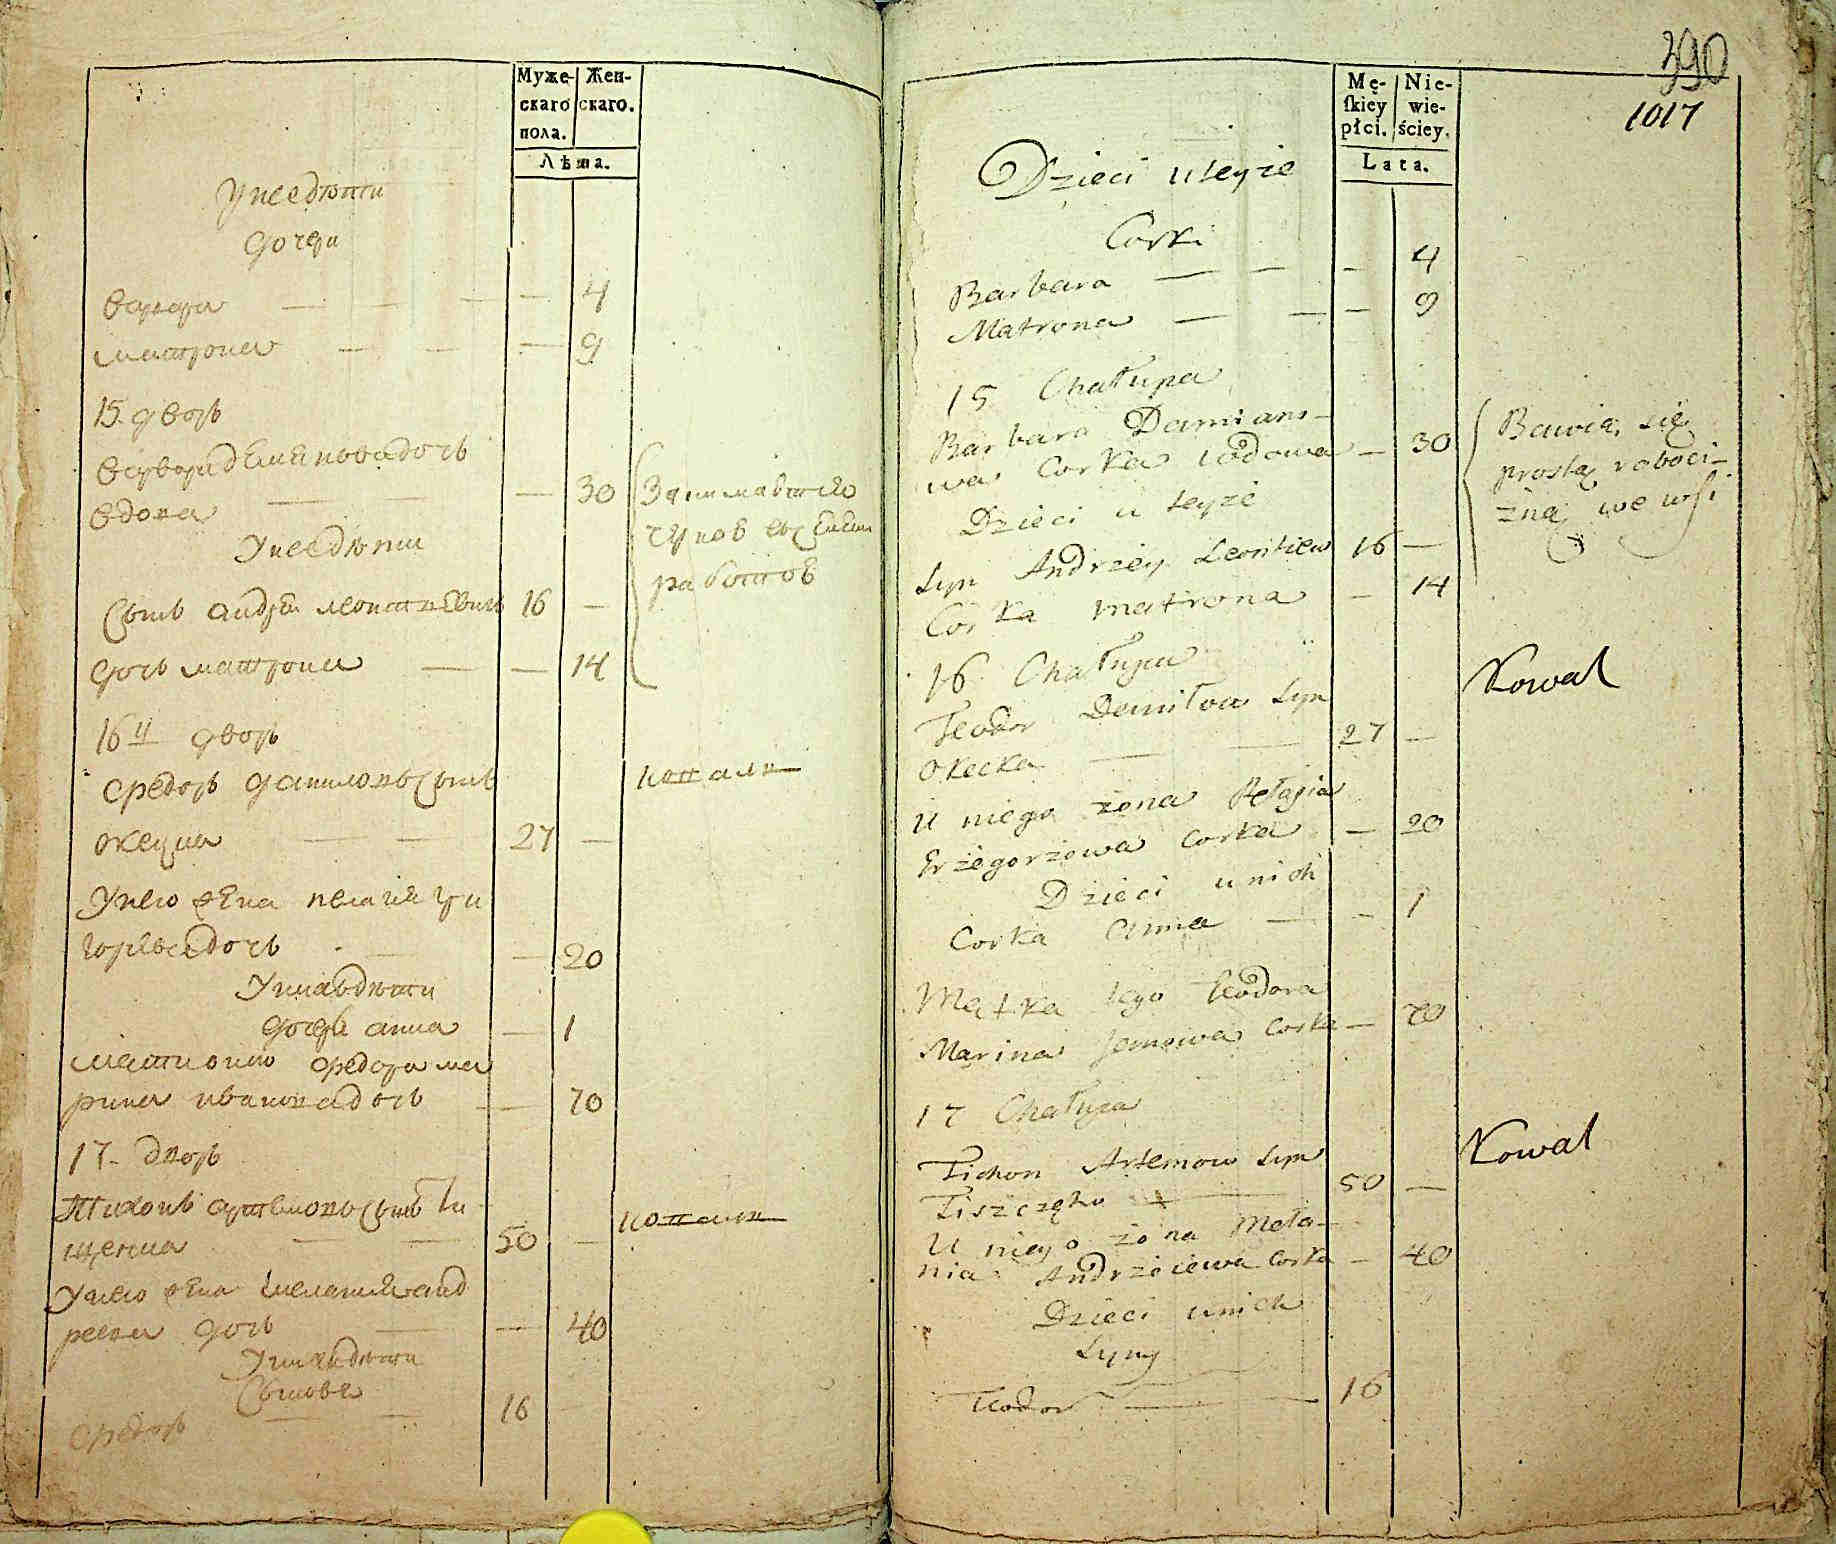 Муже- Жен-
скаго скаго.
пола.
Лѣта.
У нее дѣти
дочери
варвара — — — — 4
матрона — — — 9
15 дворъ
вдова — — 30
Занимаются
У нее дѣти
работов
Сынъ андрей леонтиевъ 16 —
дочь матрона — — 14
16й дворъ
Федоръ даниловъ сынъ
коваль
окецка — — 27 —
У него жена пелагия гри
горева дочь — — 20
У них дѣти
дочерь анна — 1
мати оного федора ма
рина иванова дочь — 70
17 дворъ
Тихонъ артемовъ сынъ ти
коваль
щенка — — 50 —
У него жена мелания анд
реева дочь — — 40
У них дѣти
Сынове
Федоръ — — 16
390
1017
Mę- Nie-
skiey wie-
płci. ściey.
Lata.
Dzieci u teyże
Corki
Barbara — — — 4
Matrona — — — 9
15 Chałupa
Barbara Damiano-
wa Corka wdowa — 30
Bawią się
prostą roboci-
zną we wsi
Dzieci u teyże
Syn Andrzey Leontiew 16 —
Corka Matrona — 14
16 Chałupa
Kowal
Teodor Daniłow Syn
Okecka — — 27 —
U niego żona Pełagia
Grzegorzowa Corka — 20
Dzieci u nich
Corka Anna — — 1
Matka tego Teodora
Marina Corka — 70
17 Chałupa
Kowal
Tichon Artemow Syn
Tiszczęko — 50 —
U niego żona Meła-
nia Andrzeiewa Corka — 40
Dzieci u nich
Syny
Teodor — — 16